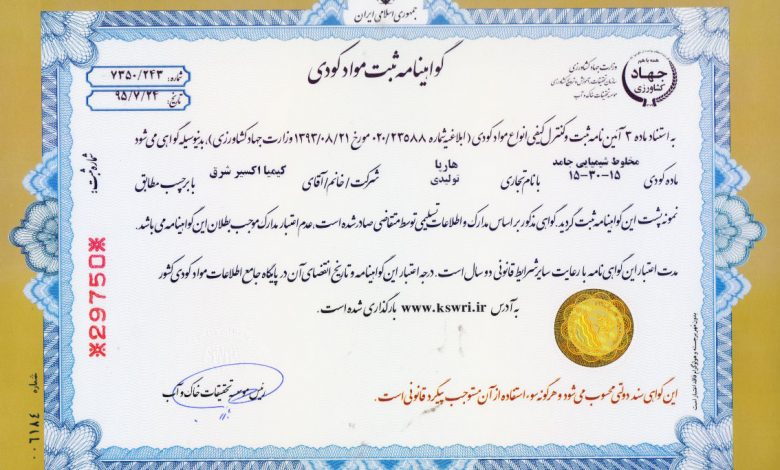 جمهوری اسلامی ایران
گواهینامه ثبت مواد کودی
شماره: ۷۳۵۰/۲۴۳
تاریخ: ۹۵/۷/۲۴
همه با هم
جهاد
کشاورزی
وزارت جهاد کشاورزی
سازمان تحقیقات، آموزش و ترویج کشاورزی
موسسه تحقیقات خاک و آب
به استناد ماده ۳ آئین نامه ثبت و کنترل کیفی انواع مواد کودی (ابلاغیه شماره ۰۲۰/۲۳۵۸۸ مورخ ۱۳۹۳/۰۸/۲۱ وزارت جهاد کشاورزی)، بدینوسیله گواهی می شود
ماده کودی مخلوط شیمیایی جامد ۱۵-۳۰-۱۵ با نام تجاری هاریا تولیدی شرکت/خانم/آقای کیمیا اکسیر شرق با برچسب مطابق
نمونه پشت این گواهینامه ثبت گردید. گواهی مذکور بر اساس مدارک و اطلاعات تسلیمی توسط متقاضی صادر شده است، عدم اعتبار مدارک موجب بطلان این گواهینامه می باشد.
مدت اعتبار این گواهی نامه با رعایت سایر شرایط قانونی دو سال است. درجه اعتبار این گواهینامه و تاریخ انقضای آن در پایگاه جامع اطلاعات مواد کودی کشور
به آدرس www.kswri.ir بارگذاری شده است.
رئیس موسسه تحقیقات خاک و آب
این گواهی سند دولتی محسوب می شود و هرگونه سوء استفاده از آن مستوجب پیگرد قانونی است.
شماره ثبت:
*29750*
شماره ۰۰۶۱۸۴
بدون مهر برجسته و هولوگرام فاقد اعتبار است